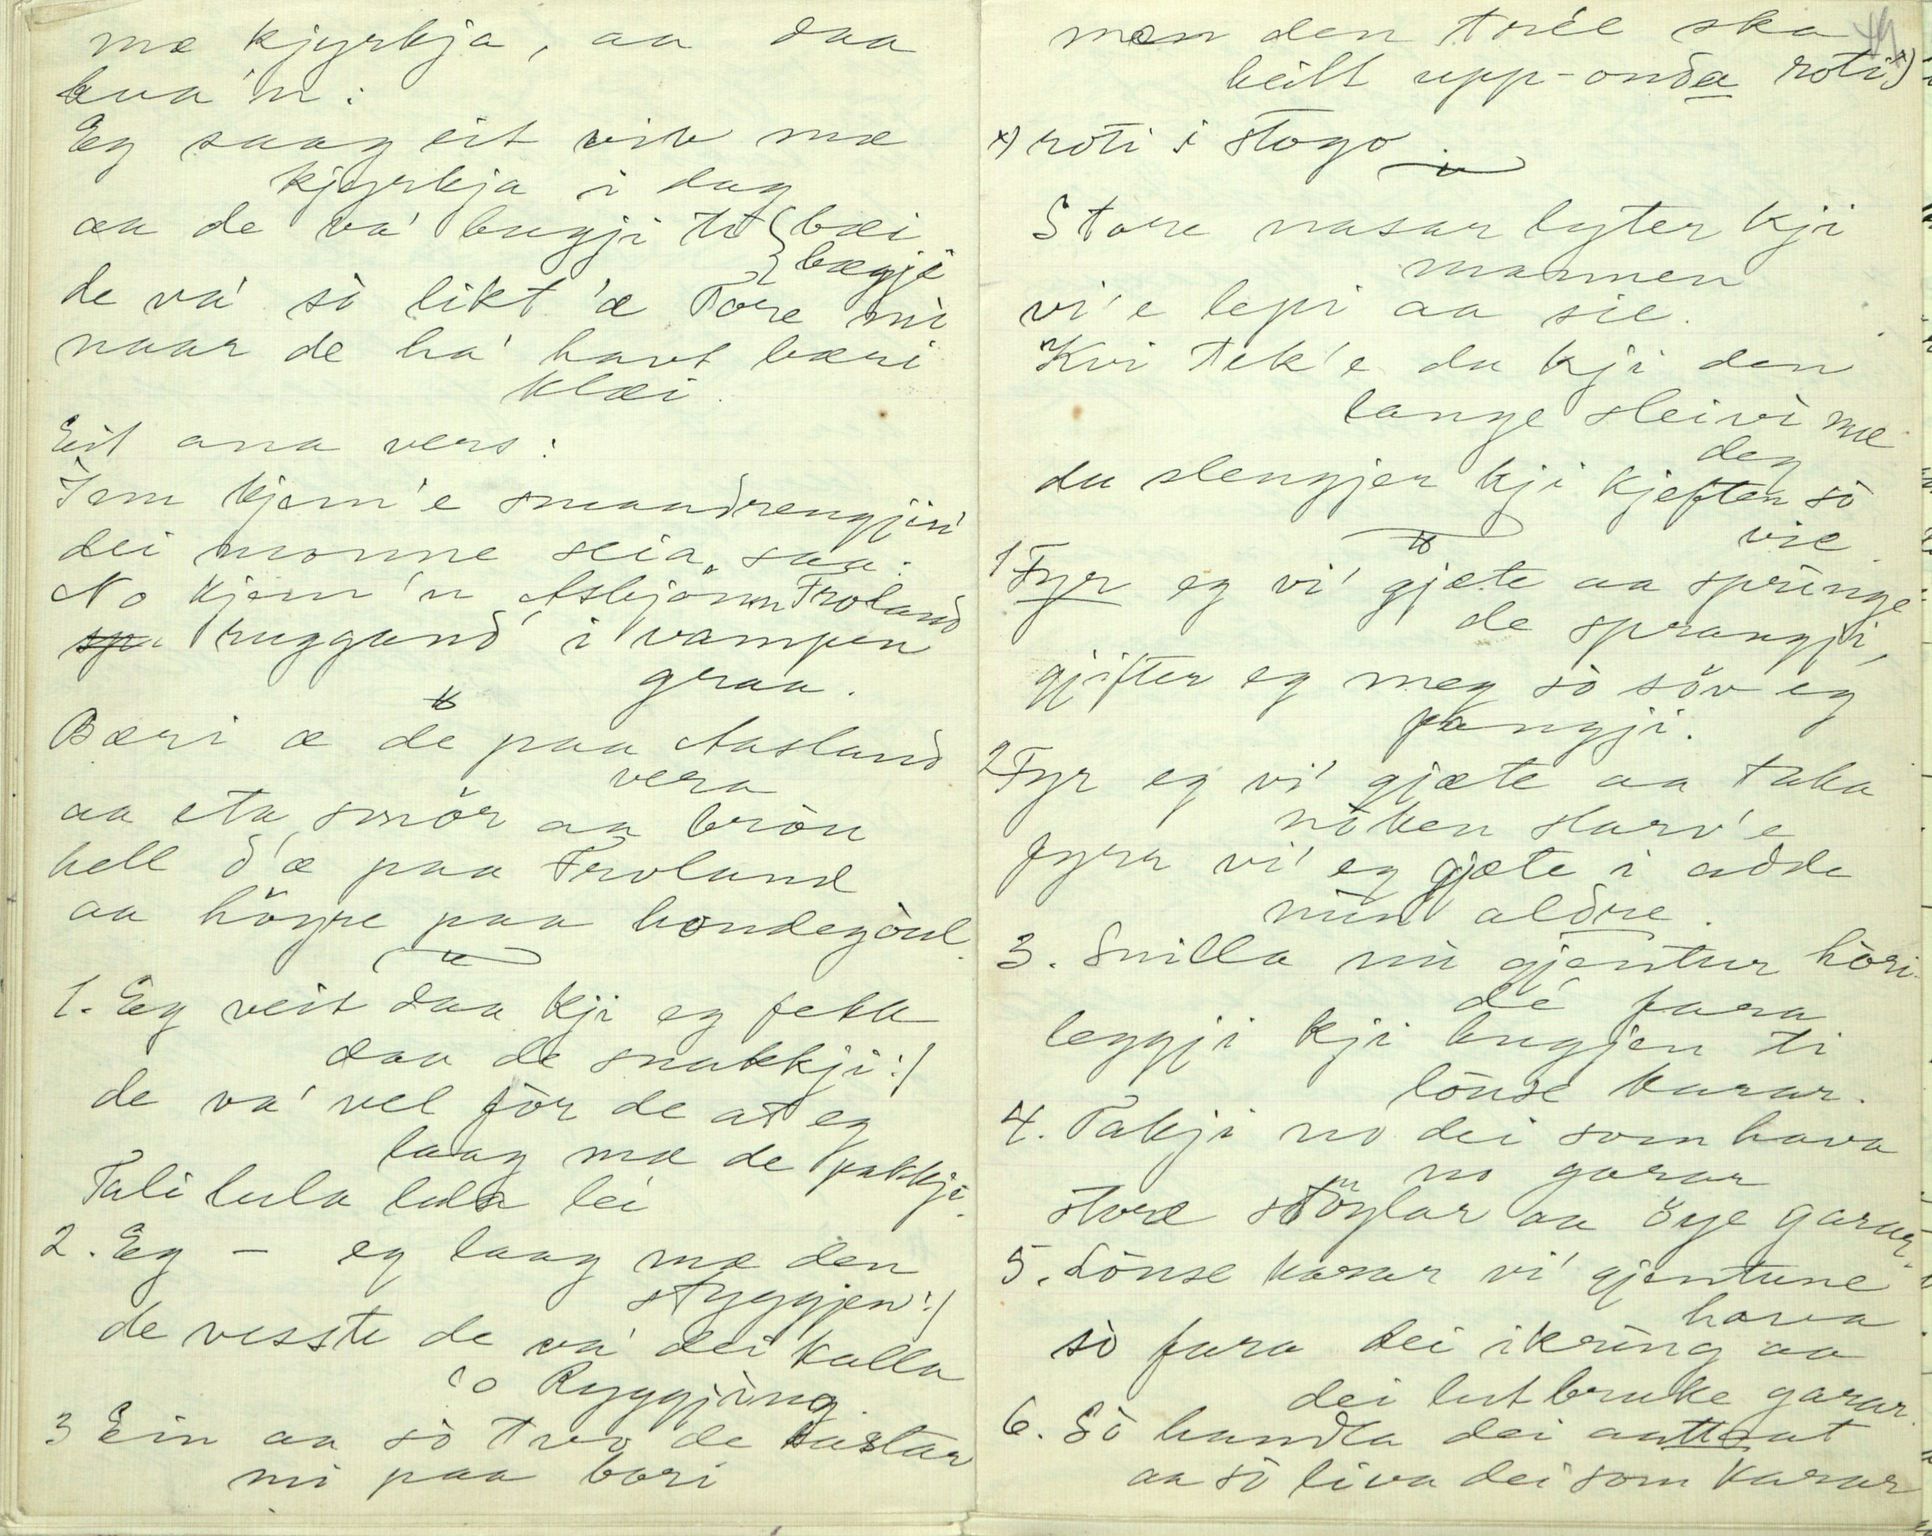 mæ kjyrkja, aa daa
kva'n:
Eg saag eit viv mæ
kjyrkja i dag
aa de va' bugji tit { bæi
bægji
de va' sò likt 'æ Tore mi
naar de ha' havt bæri
klæi.
Eit ana vers:
Fem kjem'e smaadrengjir'i
dei monne seia, saa:
No kjem'n Asbjönn Froland
ruggand' i vampen
graa.
Bæri æ de paa Aasland
vera
aa eta smör aa bröu
hell d'æ paa Froland
aa höyre paa hondegòul.
1. Eg veit daa kji eg fekk
daa de snakkji :/
de va' vel för de at eg
laag mæ de pakkji.
Tuli lula lula lei
2. Eg – eg laag mæ den
styggjen :/
de vesste de va' dei kalla
'o Ryggjing
3 Ein aa sò tvo de kastar
mi paa bori
men den tréè ska
heilt upp-onda roti x)
x) roti i stogo
Store nasar lyter kji
mannen
vi'e lepi aa sie.
Kvi tek'e du kji den
lange sleivi mæ
deg
du slengjer kji kjeften sò
vie.
1 Fyr eg vi' gjæte aa springe
de sprangji,
gjifter eg meg sò söv eg
fangji.
2 Fyr eg vi' gjæte aa taka
nòken slarv'e
fyrr vi' eg gjæte i adde
min aldre.
3. Snilla mi gjentur höri
dé fara
leggji kji hugjen ti
lönse karar.
4. Takji no dei som hava
no garar
store stöylar aa öye garar.
5. Lönse karar vi' gjentune
hava
sò fara dei ikring aa
dei lutbruke garar.
6. Sò handla dei aattrat
aa sò liva dei som karar